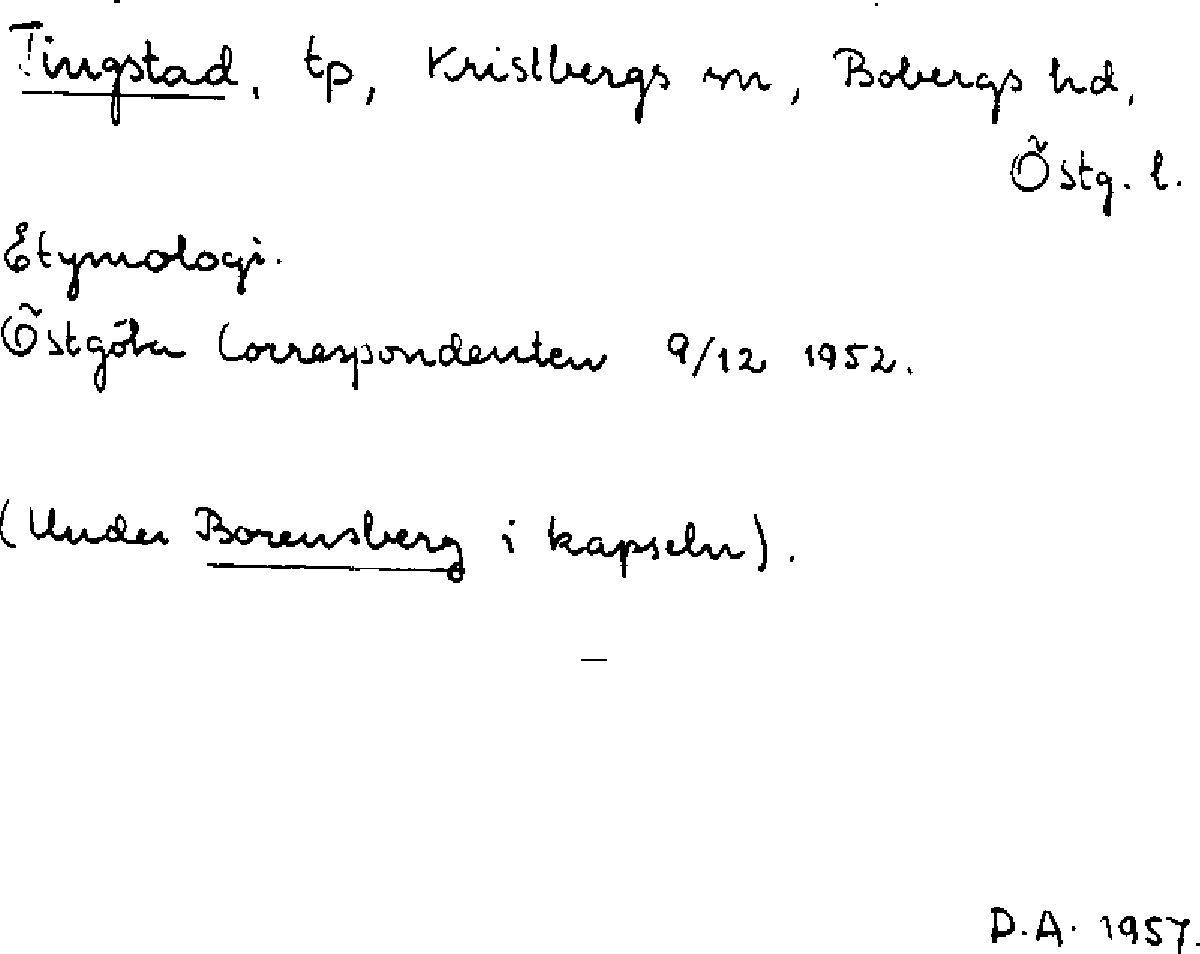 Tingstad, tp, Kristbergs sn, Bobergs hd,
Östg. l.
Etymologi.
Östgöta Correspondenten 9/12 1952.
(Under Borensberg i kapseln).
—
D.A. 1957.